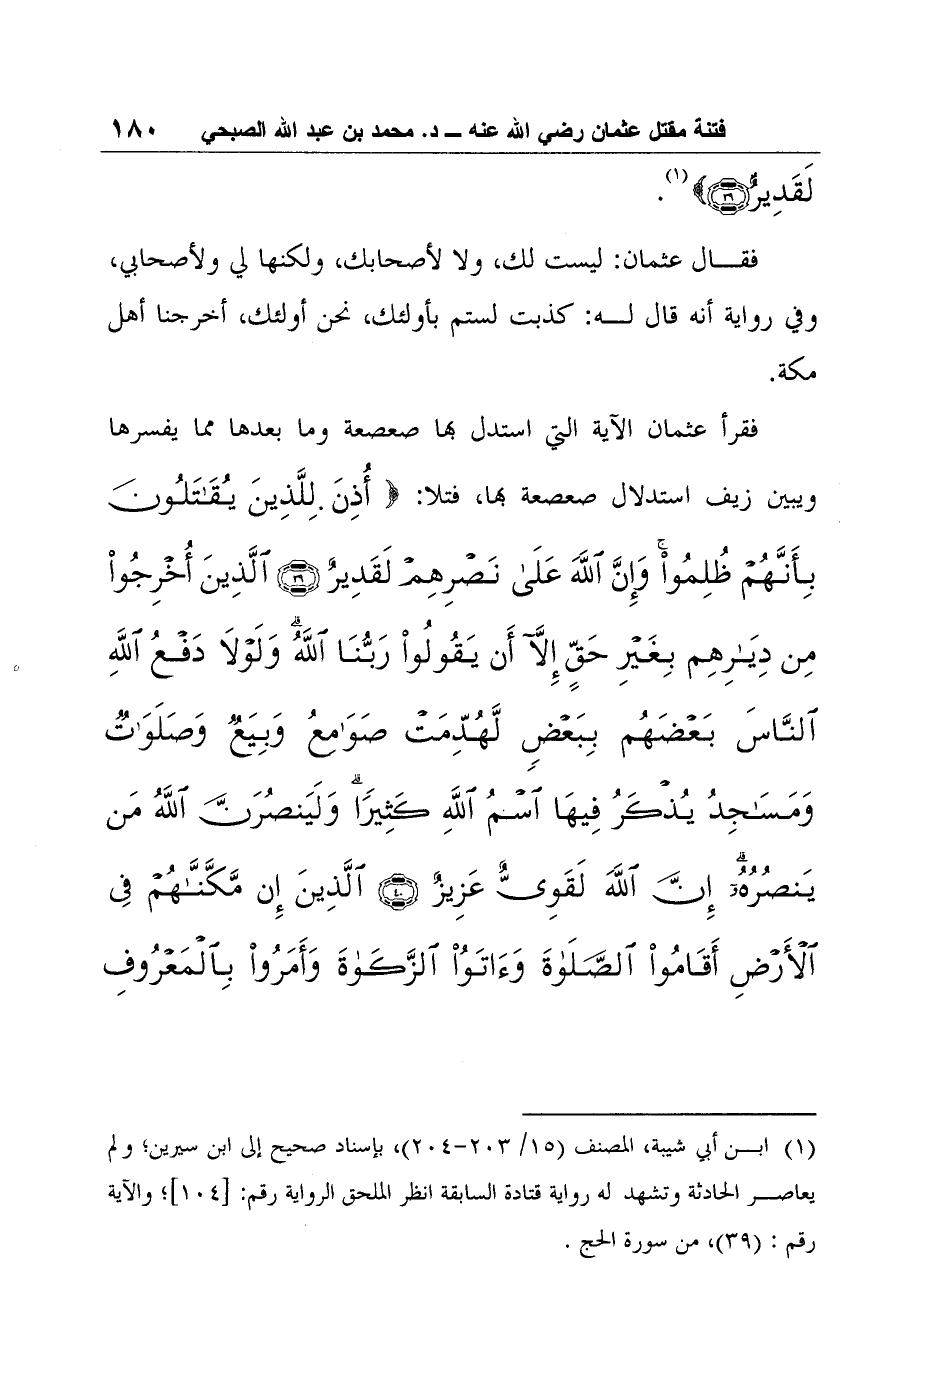 فتنة مقتل عثمان رضي الله عنه ــ د. محمد بن عبد الله الصبحي ١٨٠
لَقَدِيرٌ ﴿٣٩﴾﴾(١).
فقـــال عثمان: ليست لك، ولا لأصحابك، ولكنها لي ولأصحابي،
وفي رواية أنه قال لـــه: كذبت لستم بأولئك، نحن أولئك، أخرجنا أهل
مكة.
فقرأ عثمان الآية التي استدل بها صعصعة وما بعدها مما يفسرها
ويبين زيف استدلال صعصعة بها، فتلا: ﴿ أُذِنَ لِلَّذِينَ يُقَٰتَلُونَ
بِأَنَّهُمْ ظُلِمُواْۚ وَإِنَّ ٱللَّهَ عَلَىٰ نَصْرِهِمْ لَقَدِيرٌ ﴿٣٩﴾ ٱلَّذِينَ أُخْرِجُواْ
مِن دِيَٰرِهِم بِغَيْرِ حَقٍّ إِلَّآ أَن يَقُولُواْ رَبُّنَا ٱللَّهُۗ وَلَوْلَا دَفْعُ ٱللَّهِ
ٱلنَّاسَ بَعْضَهُم بِبَعْضٍ لَّهُدِّمَتْ صَوَٰمِعُ وَبِيَعٌ وَصَلَوَٰتٌ
وَمَسَٰجِدُ يُذْكَرُ فِيهَا ٱسْمُ ٱللَّهِ كَثِيرًاۗ وَلَيَنصُرَنَّ ٱللَّهُ مَن
يَنصُرُهُۥٓۗ إِنَّ ٱللَّهَ لَقَوِىٌّ عَزِيزٌ ﴿٤٠﴾ ٱلَّذِينَ إِن مَّكَّنَّٰهُمْ فِى
ٱلْأَرْضِ أَقَامُواْ ٱلصَّلَوٰةَ وَءَاتَوُاْ ٱلزَّكَوٰةَ وَأَمَرُواْ بِٱلْمَعْرُوفِ
(١) ابـــن أبي شيبة، المصنف (١٥/ ٢٠٣-٢٠٤)، بإسناد صحيح إلى ابن سيرين؛ و لم
يعاصـــر الحادثة وتشهد له رواية قتادة السابقة انظر الملحق الرواية رقم: [١٠٤]؛ والآية
رقم : (٣٩)، من سورة الحج .